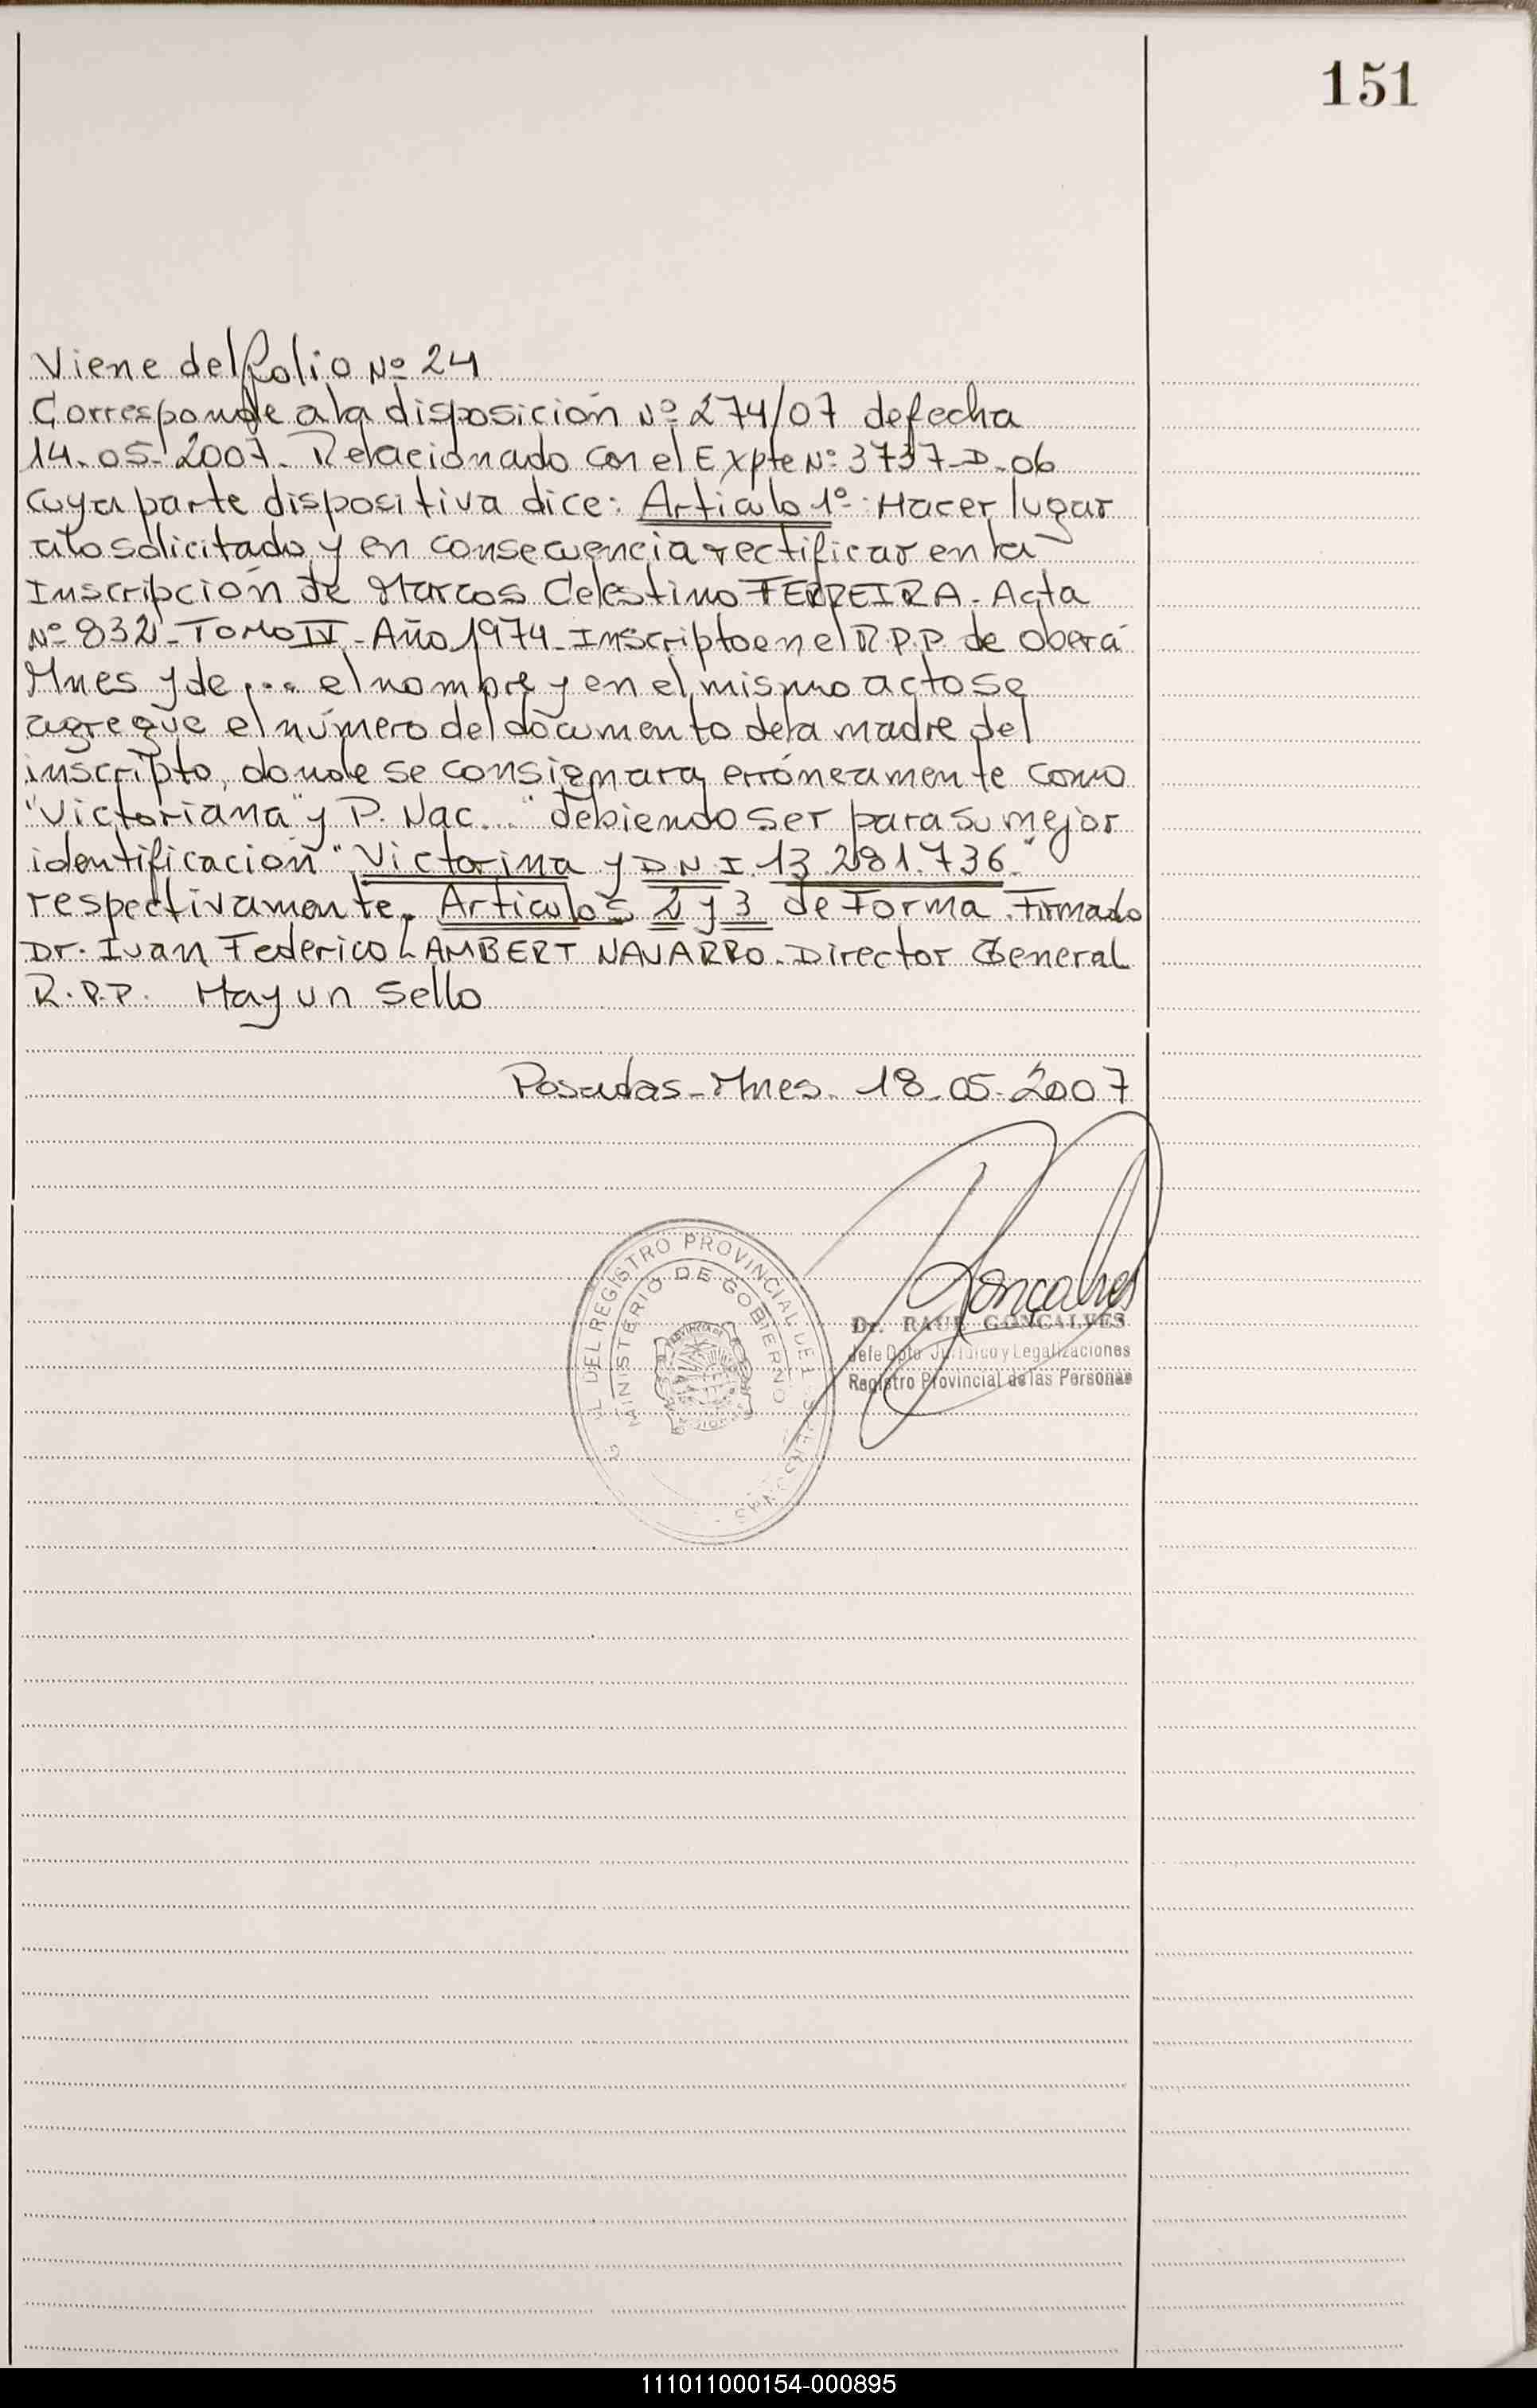 151
Viene del folio Nº 24
Corresponde a la disposición Nº 274/07 de fecha
14-05-2007. Relacionado con el Expte Nº 3737-D-06
cuya parte dispositiva dice: Articulo 1º: Hacer lugar
a lo solicitado y en consecuencia rectificar en la
Inscripción de Marcos Celestino FERREIRA. Acta
Nº 832 - TOMO IV - Año 1974 - Inscripto en el R.P.P. de Oberá
Mnes y de ... el nombre y en el mismo acto se
agregue el número del documento de la madre del
inscripto, donde se consignara erróneamente como
"Victoriana" y P. Nac..." debiendo ser para su mejor
identificación "Victorina y D.N.I. 13.281.736."
respectivamente. Articulos 2 y 3 de Forma. Firmado
Dr. Ivan Federico LAMBERT NAVARRO. Director General
R.P.P. Hay un sello
Posadas - Mnes. 18-05-2007
DEL REGISTRO PROVINCIAL DE PERSONAS
MINISTERIO DE GOBIERNO
Goncalves
Dr. RAUL GONCALVES
Jefe Dpto Jurídico y Legalizaciones
Registro Provincial de las Personas
111011000154-000895